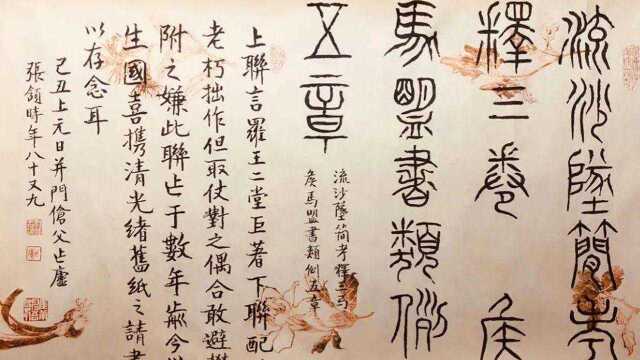 流沙墜簡考
釋三卷 矦
馬盟書類例
五章
流沙墜簡考釋三弓
矦馬盟書類例五章
上聯言羅王二堂巨著下聯配
老朽拙作但取仗對之偶合敢避攀
附之嫌此聯占于數年歬今
生國喜攜清光緒舊紙之請書
以存念耳
己丑上元日并門傖父占廬
張頷時年八十又九